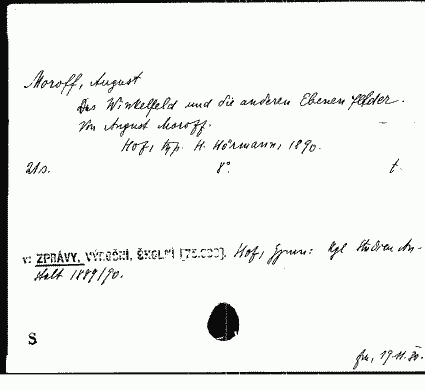 Moroff, August
Das Winkelfeld und die anderen Ebenen felder.
Von August Moroff.
Hof, typ. H. Hörmann, 1890.
21 s. 8°. t.
v: ZPRÁVY, VÝROČNÍ, ŠKOLNÍ [75.000]. Hof, Gymn: Kgl Studien An-
stalt 1889/90.
S
19.11.